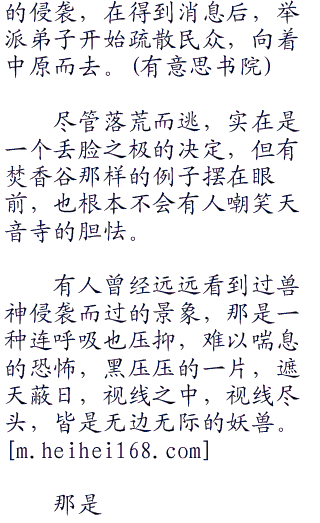 的侵袭，在得到消息后，举
派弟子开始疏散民众，向着
中原而去。(有意思书院)
尽管落荒而逃，实在是
一个丢脸之极的决定，但有
焚香谷那样的例子摆在眼
前，也根本不会有人嘲笑天
音寺的胆怯。
有人曾经远远看到过兽
神侵袭而过的景象，那是一
种连呼吸也压抑，难以喘息
的恐怖，黑压压的一片，遮
天蔽日，视线之中，视线尽
头，皆是无边无际的妖兽。
[m.heihei168.com]
那是